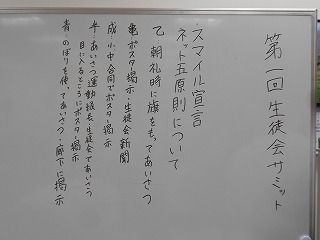 第一回 生徒会サミット
・スマイル宣言
ネット五原則について
乙 朝礼時に旗をもってあいさつ
亀 ポスター掲示・生徒会新聞
成 小中合同でポスター掲示
牛・あいさつ運動・級長・生徒会であいさつ
目に入るところにポスター掲示
青・のぼりを使ってあいさつ・廊下に掲示